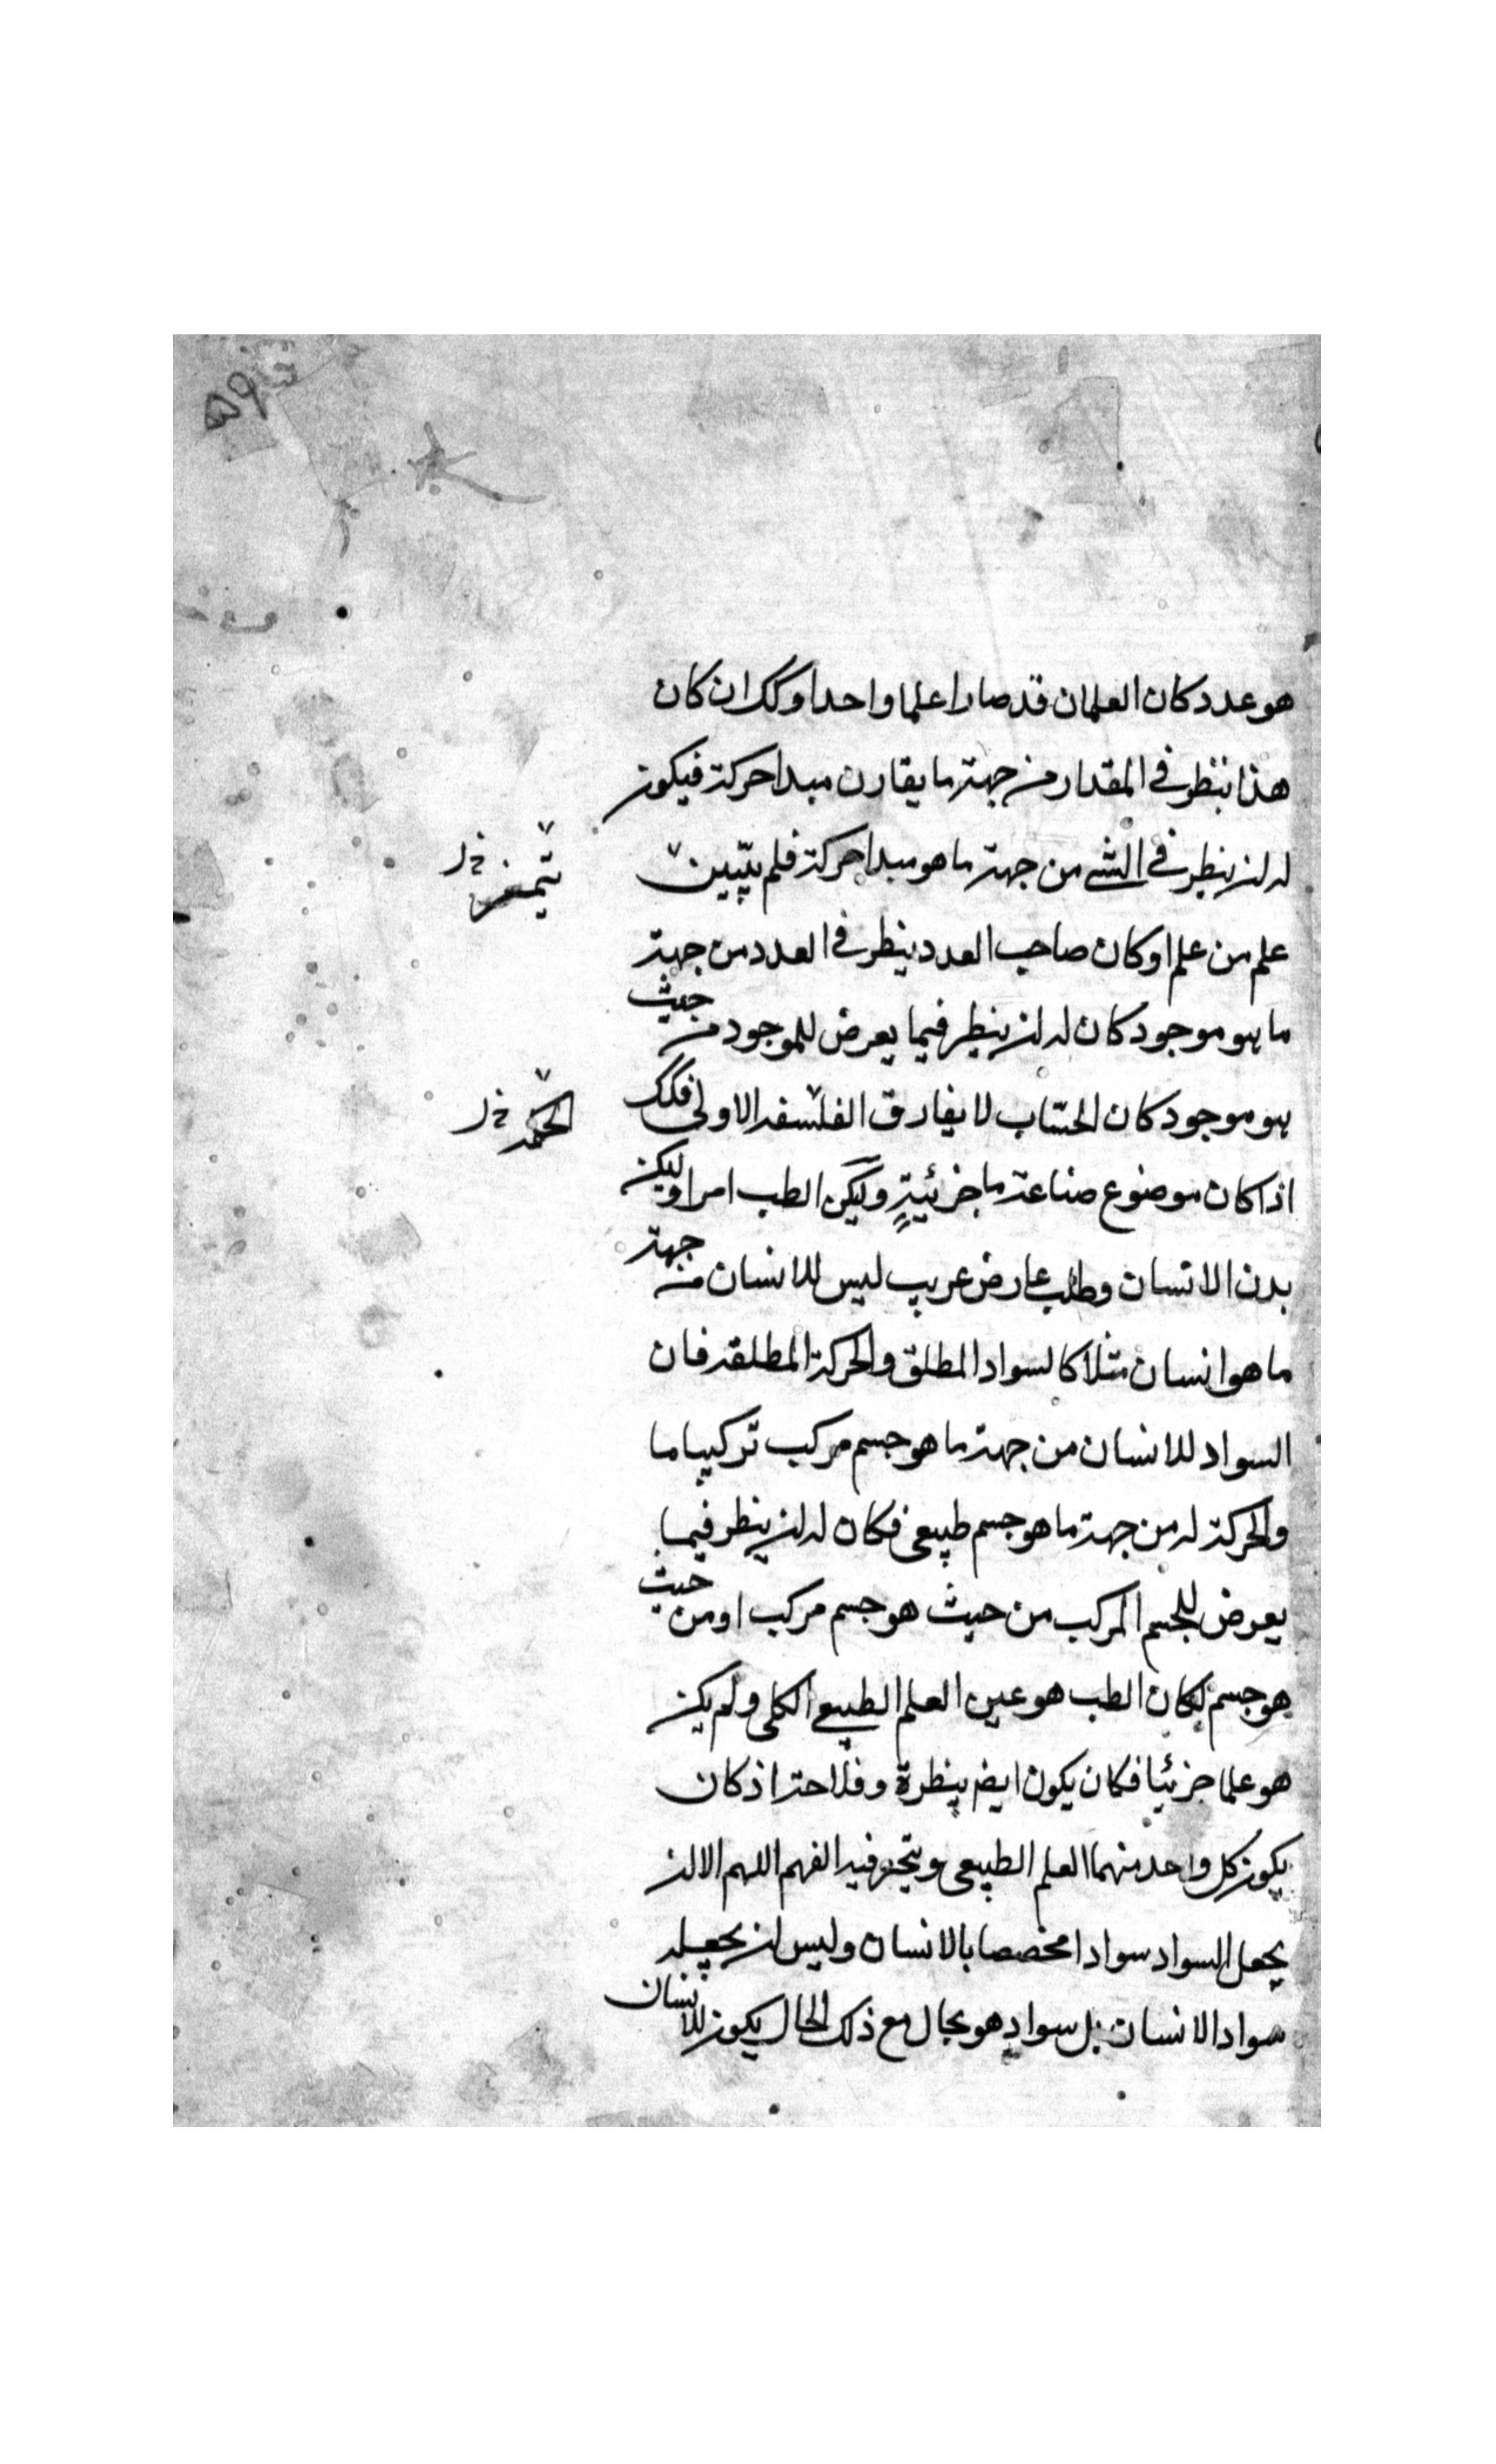 ۵۹
هو عدد كان العلمان قد صارا علما واحدا وكك ان كان
هذا ينظر في المقدار من جهة ما يقارن مبدا حركة فيكون
له ان ينظر في الشي من جهة ما هو مبدا حركة فلم يتبين
يتميز خ ل
علم من علم او كان صاحب العدد ينظر في العدد من جهة
ما هو موجود كان له ان ينظر فيما يعرض للموجود من حيث
هو موجود كان الحساب لا يفارق الفلسفه الاولى فكك
خ ل
اذا كان موضوع صناعة ما جزئيةٍ وليكن الطب امرا وليكن
بدن الانسان وطلب عارض غريب ليس للانسان من جهة
ما هو انسان مثلا كالسواد المطلق والحركة المطلقه فان
السواد للانسان من جهة ما هو جسم مركب تركيبا ما
والحركة له من جهة ما هو جسم طبيعى فكان له ان ينظر فيما
يعرض للجسم المركب من حيث هو جسم مركب او من حيث
هو جسم لكان الطب هو عين العلم الطبيعي الكلى ولم يكن
هو علما جزئيا فكان يكون ايض ينظرة وفلاحة اذ كان
يكون كل واحد منهما العلم الطبيعى ويتحير فيه الفهم اللهم الا ان
يجعل السواد سوادا مخصصا بالانسان وليس ان يجعله
سواد الانسان بل سواد هو بحال مع ذلك الحال يكون للانسان